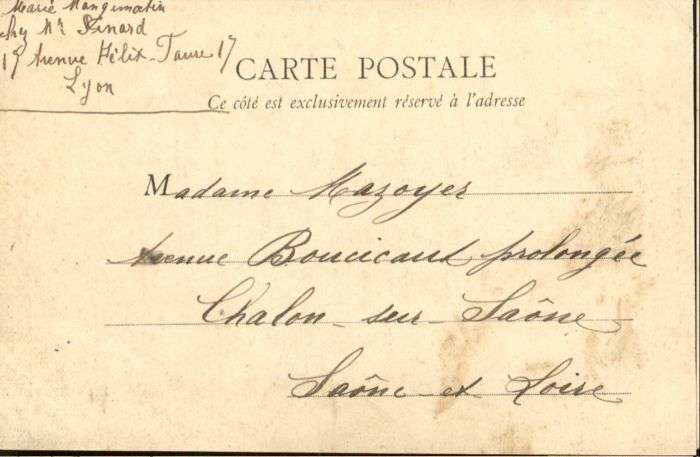 Marie Mangematin
chez Mr Pinard
17 Avenue Félix-Faure 17
Lyon
CARTE POSTALE
Ce côté est exclusivement réservé à l'adresse
Madame Mazoyer
Avenue Boucicaut prolongée
Chalon-sur-Saône
Saône-et-Loire